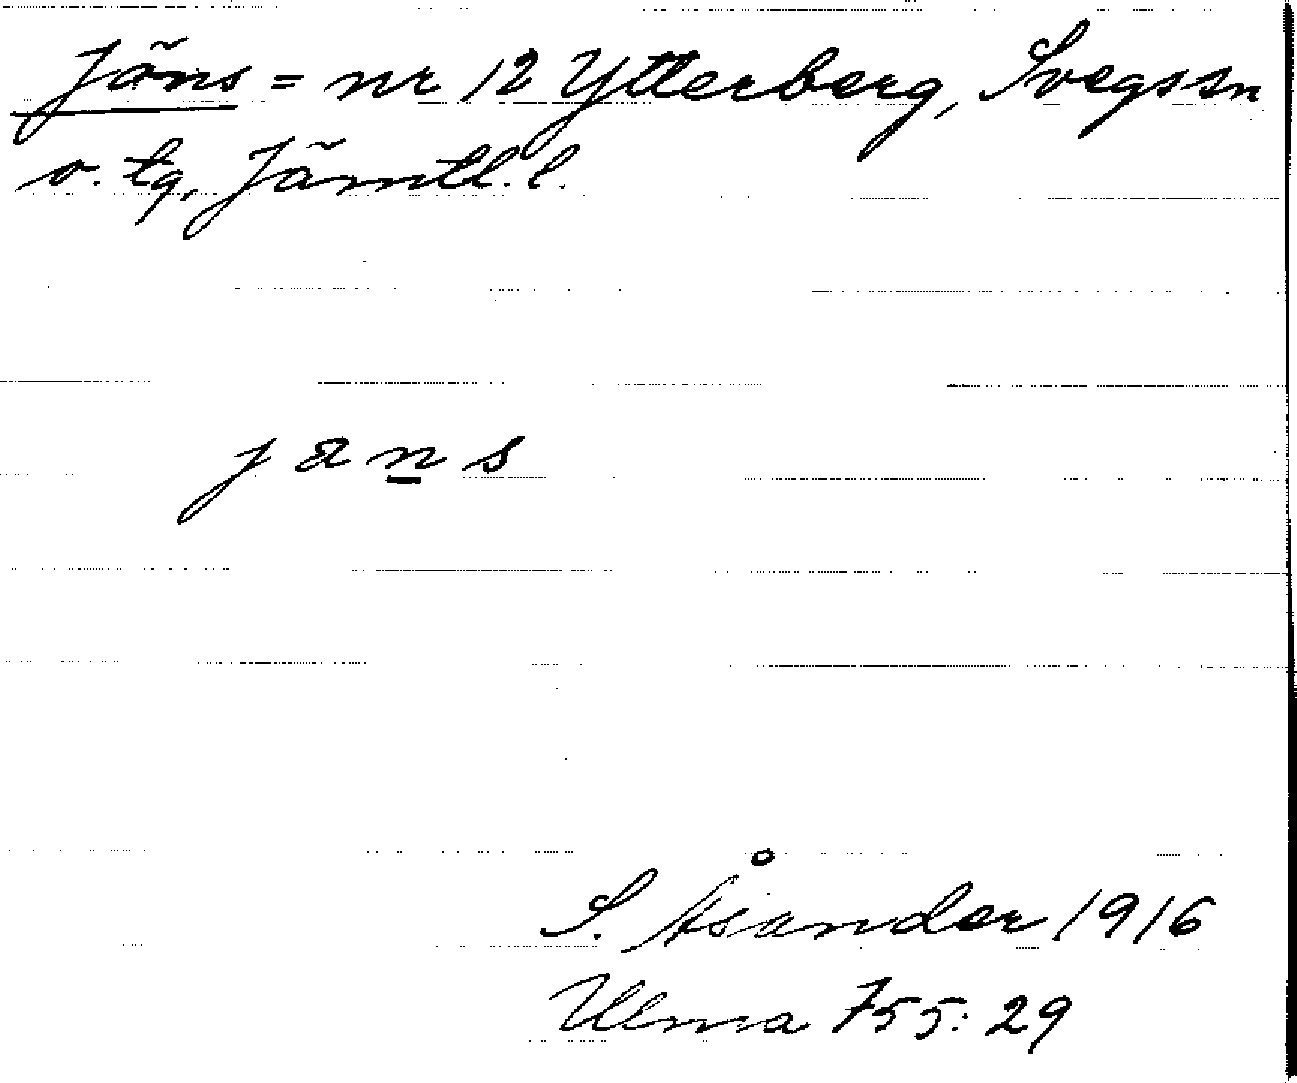 Jäns = nr 12 Ytterberg, Svegssn
o. tg, Jämtl. l.
jans
S. Åsander 1916
Ulma 755: 29